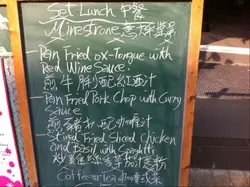 Set Lunch 中餐
Minestrone
Pan Fried ox-Tongue with
Red Wine Sauce
煎牛脷配紅酒汁
Pan Fried Pork Chop with Curry
Sauce
煎豬扒配咖喱汁
Stired Fried Sliced Chicken
and with Spaghetti
炒雞
Coffee or tea 咖啡或茶